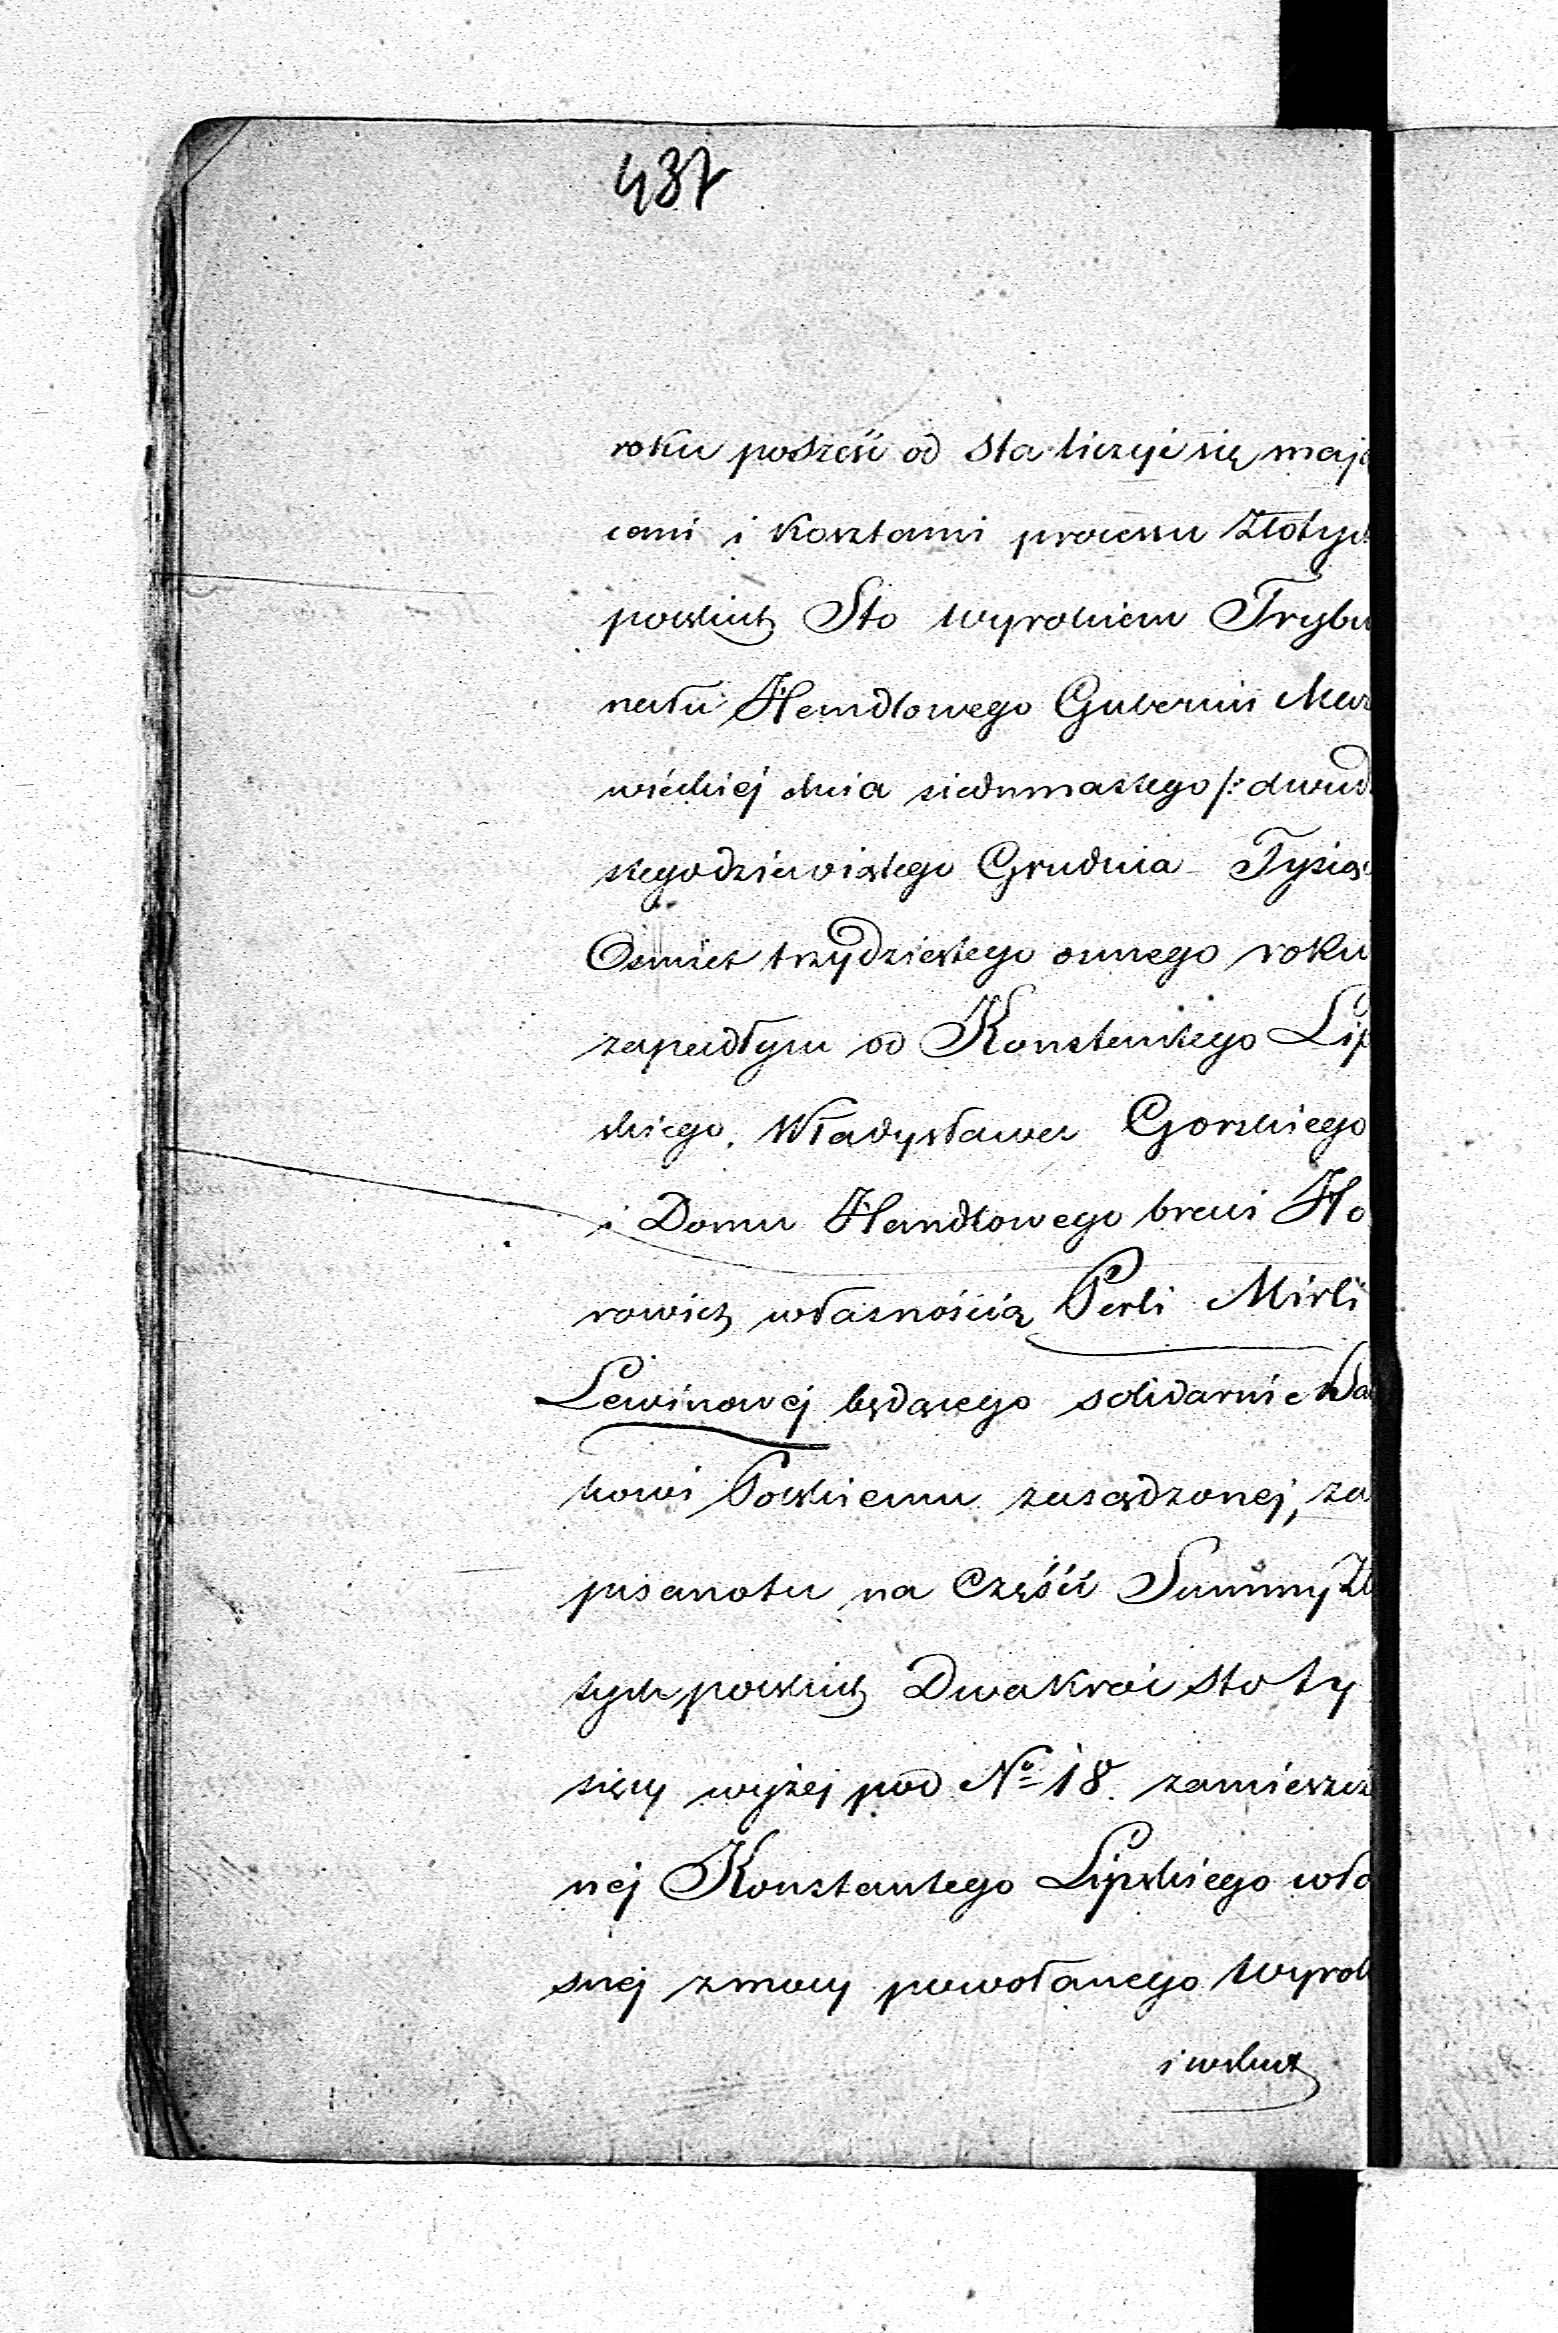 437
roku po sześć od sta liczyć się mają
cemi i kosztami processu Złotych
polskich Sto wyrokiem Trybu
nału Handlowego Gubernii Maz
wieckiej dnia siedmnastego /: dwud
stegodziewiątego Grudnia Tysiąc
Ośmset trzydziestego ósmego roku
zapadłym od Konstantego Lip
skiego, Władysława Gorskiego
i Domu Handlowego braci Ho
rowicz własnością Perli Mirli
Lewinowej będącego solidarnie Ba
kowi Polskiemu zasądzonej, za
pisanotu na Część Summy Zł
tych polskich Dwakroć sto ty
sięcy wyżej pod No 18. zamieszcz
nej Konstantego Lipskiego wła
snej z mocy powołanego Wyrok
i wskut